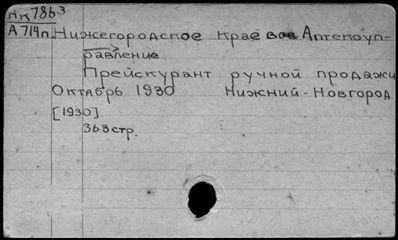 НК786³
А714п Нижегородское краевое Аптекоуп-
равление.
Прейскурант ручной продажи
Октябрь 1930 Нижний-Новгород.
[1930]
363 стр.